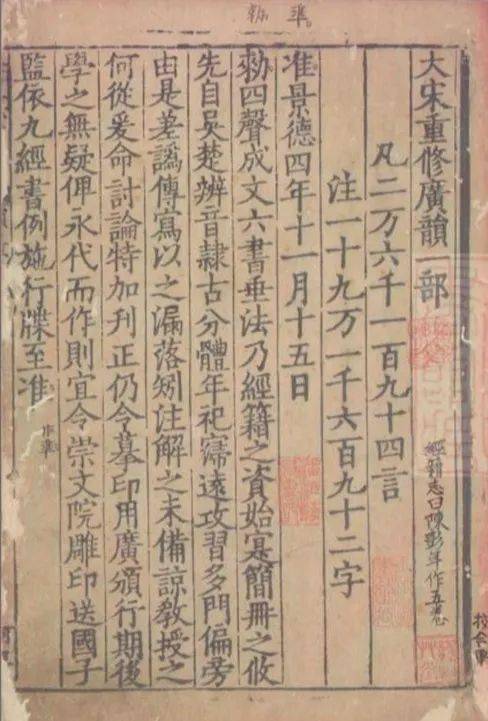 大宋重修廣韻一部
經籍志曰陳彭年作五卷
凡二万六千一百九十四言
注一十九万一千六百九十二字
准景德四年十一月十五日
勑四聲成文六書垂法乃經籍之資始寔簡冊之攸
先自吳楚辨音隷古分體年祀寖遠攻習多門偏旁
由是差譌傳寫以之漏落矧注解之未備諒教授之
何從爰命討論特加刊正仍令摹印用廣頒行期後
學之無疑俾永代而作則宜令崇文院雕印送國子
監依九經書例施行牒至准